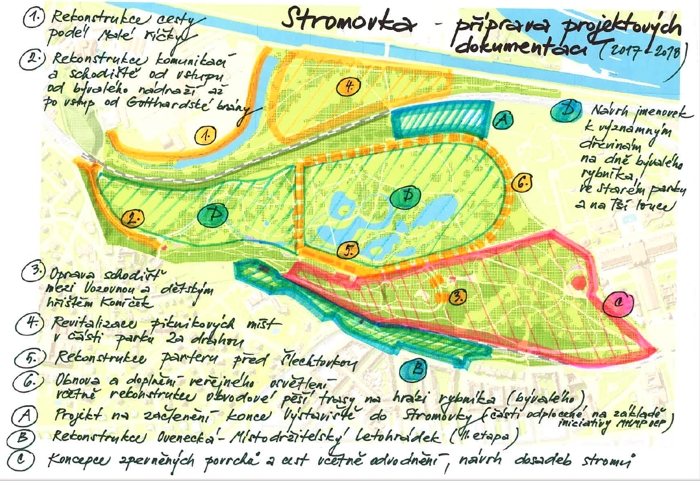 Stromovka - příprava projektových
dokumentací (2017-2018)
1. Rekonstrukce cesty
podél Malé říčky
2. Rekonstrukce komunikací
a schodiště od vstupu
od bývalého nádraží až
po vstup od Gotthardské brány
D Návrh jmenovek
k významným
dřevinám
na dně bývalého
rybníka,
ve starém parku
a na Tší louce
4.
1.
A
D
D
6.
2.
5.
3.
C
B
3. Oprava schodiště
mezi Vozovnou a dětským
hřištěm Koníček
4. Revitalizace piknikových míst
v části parku za dráhou
5. Rekonstrukce parteru před Šlechtovkou
6. Obnova a doplnění veřejného osvětlení
včetně rekonstrukce obvodové pěší trasy na hrázi rybníka (bývalého)
A Projekt na začlenění konce Výstaviště do Stromovky (části odplocené na základě
iniciativy MHMP OCP)
B Rekonstrukce Ovenecká - Místodržitelský Letohrádek (VII. etapa)
C Koncepce zpevněných povrchů a cest včetně odvodnění, návrh dosadeb stromů